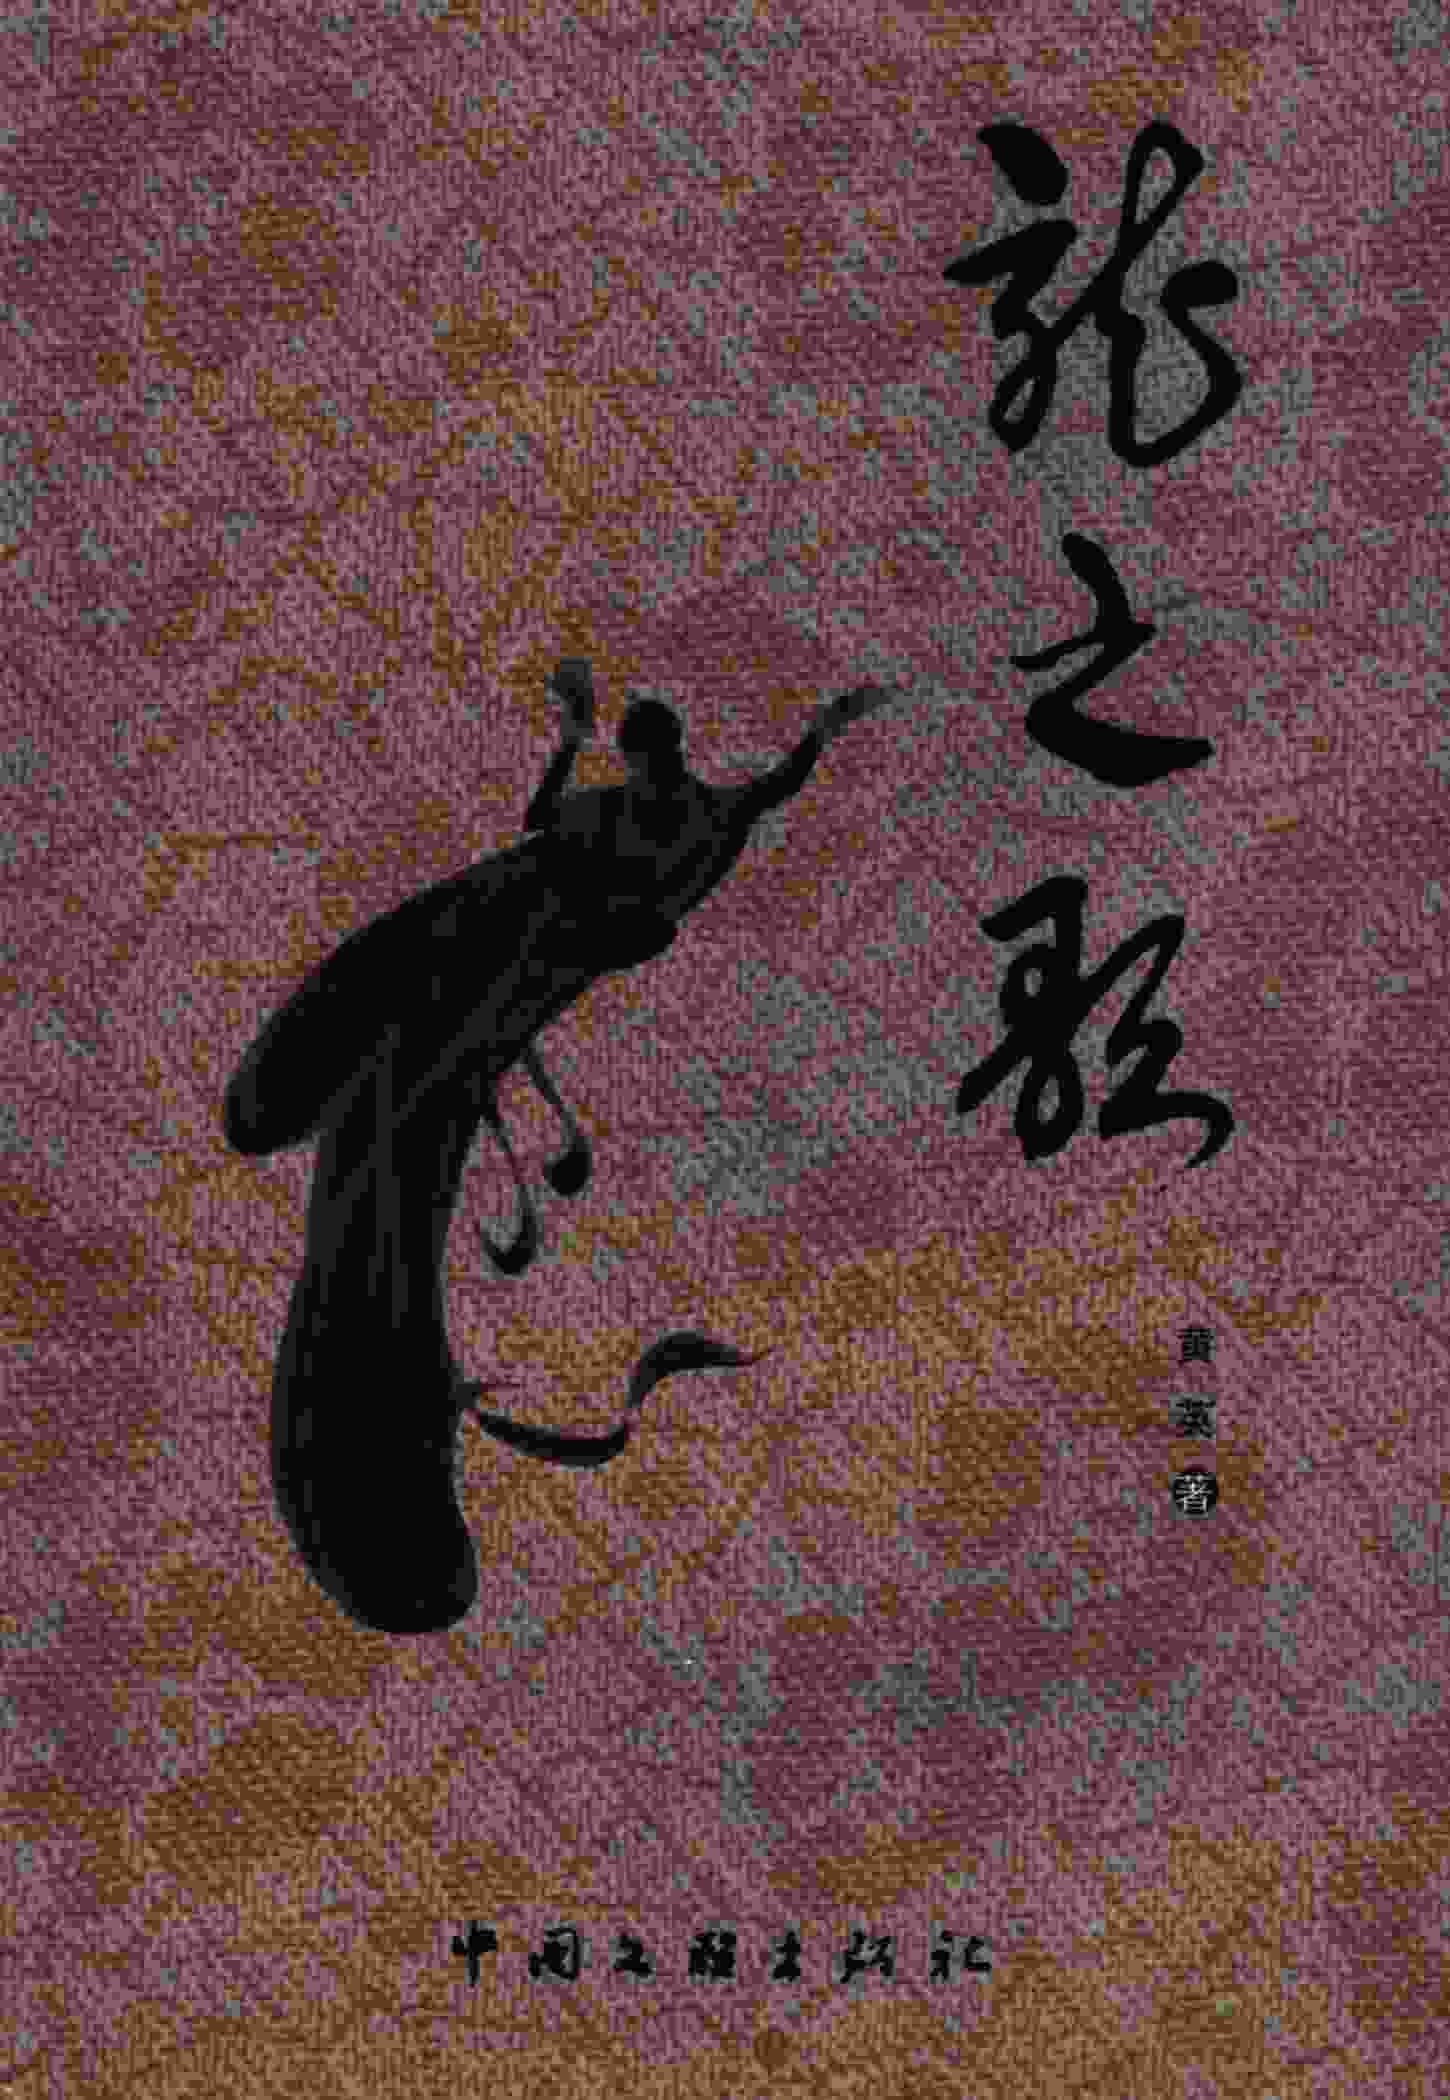 龍之歌
黄英著
中国文联出版社